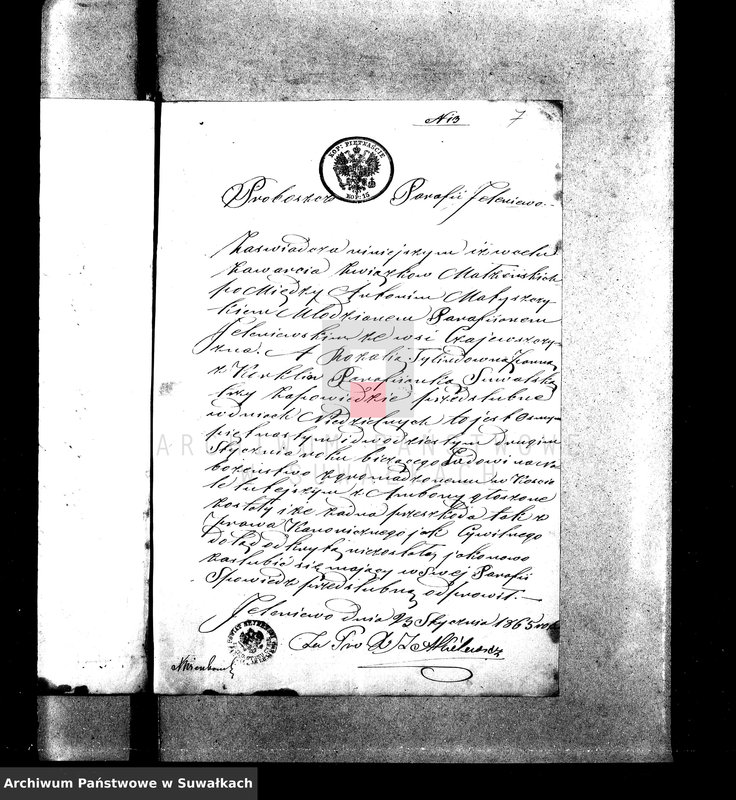 N 13 7
KOP: PIĘTNAŚCIE
KOP: 15
Proboszcz Parafii Jeleniewo
Zaswiadcza niniejszym iż w celu
Zawarcia Związkow Małżenskich
poMiędzy Antonim Matyszczy
kiem Młodzianem Parafianem
Jeleniewskim ze wsi Czajewszczy
zna. A Rozalią Panną
z Kuklin Parafianką Suwalską
trzy Zapowiedzie przedslubne
w dniach Niedzielnych to jest Osmym
piętnastym i dwódziestym drugim
Stycznia roku bieżącego Ludowi na na
bożeństwo zgromadzonemu w Koscie
le tutejszym z Ambony głoszone
zostały i że żadna przeszkoda tak z
prawa Kanonicznego jak Cywilnego
dotąd odkrytą niezostała, jakonowo
zaslubić się mający w Swej Parafii
Spowiedz przedslubną odprawił.
Jeleniewo dnia 23 Stycznia 1865 roku
Za Pro
ARCHIWUM PAŃSTWOWE
W SUWAŁKACH
Archiwum Państwowe w Suwałkach